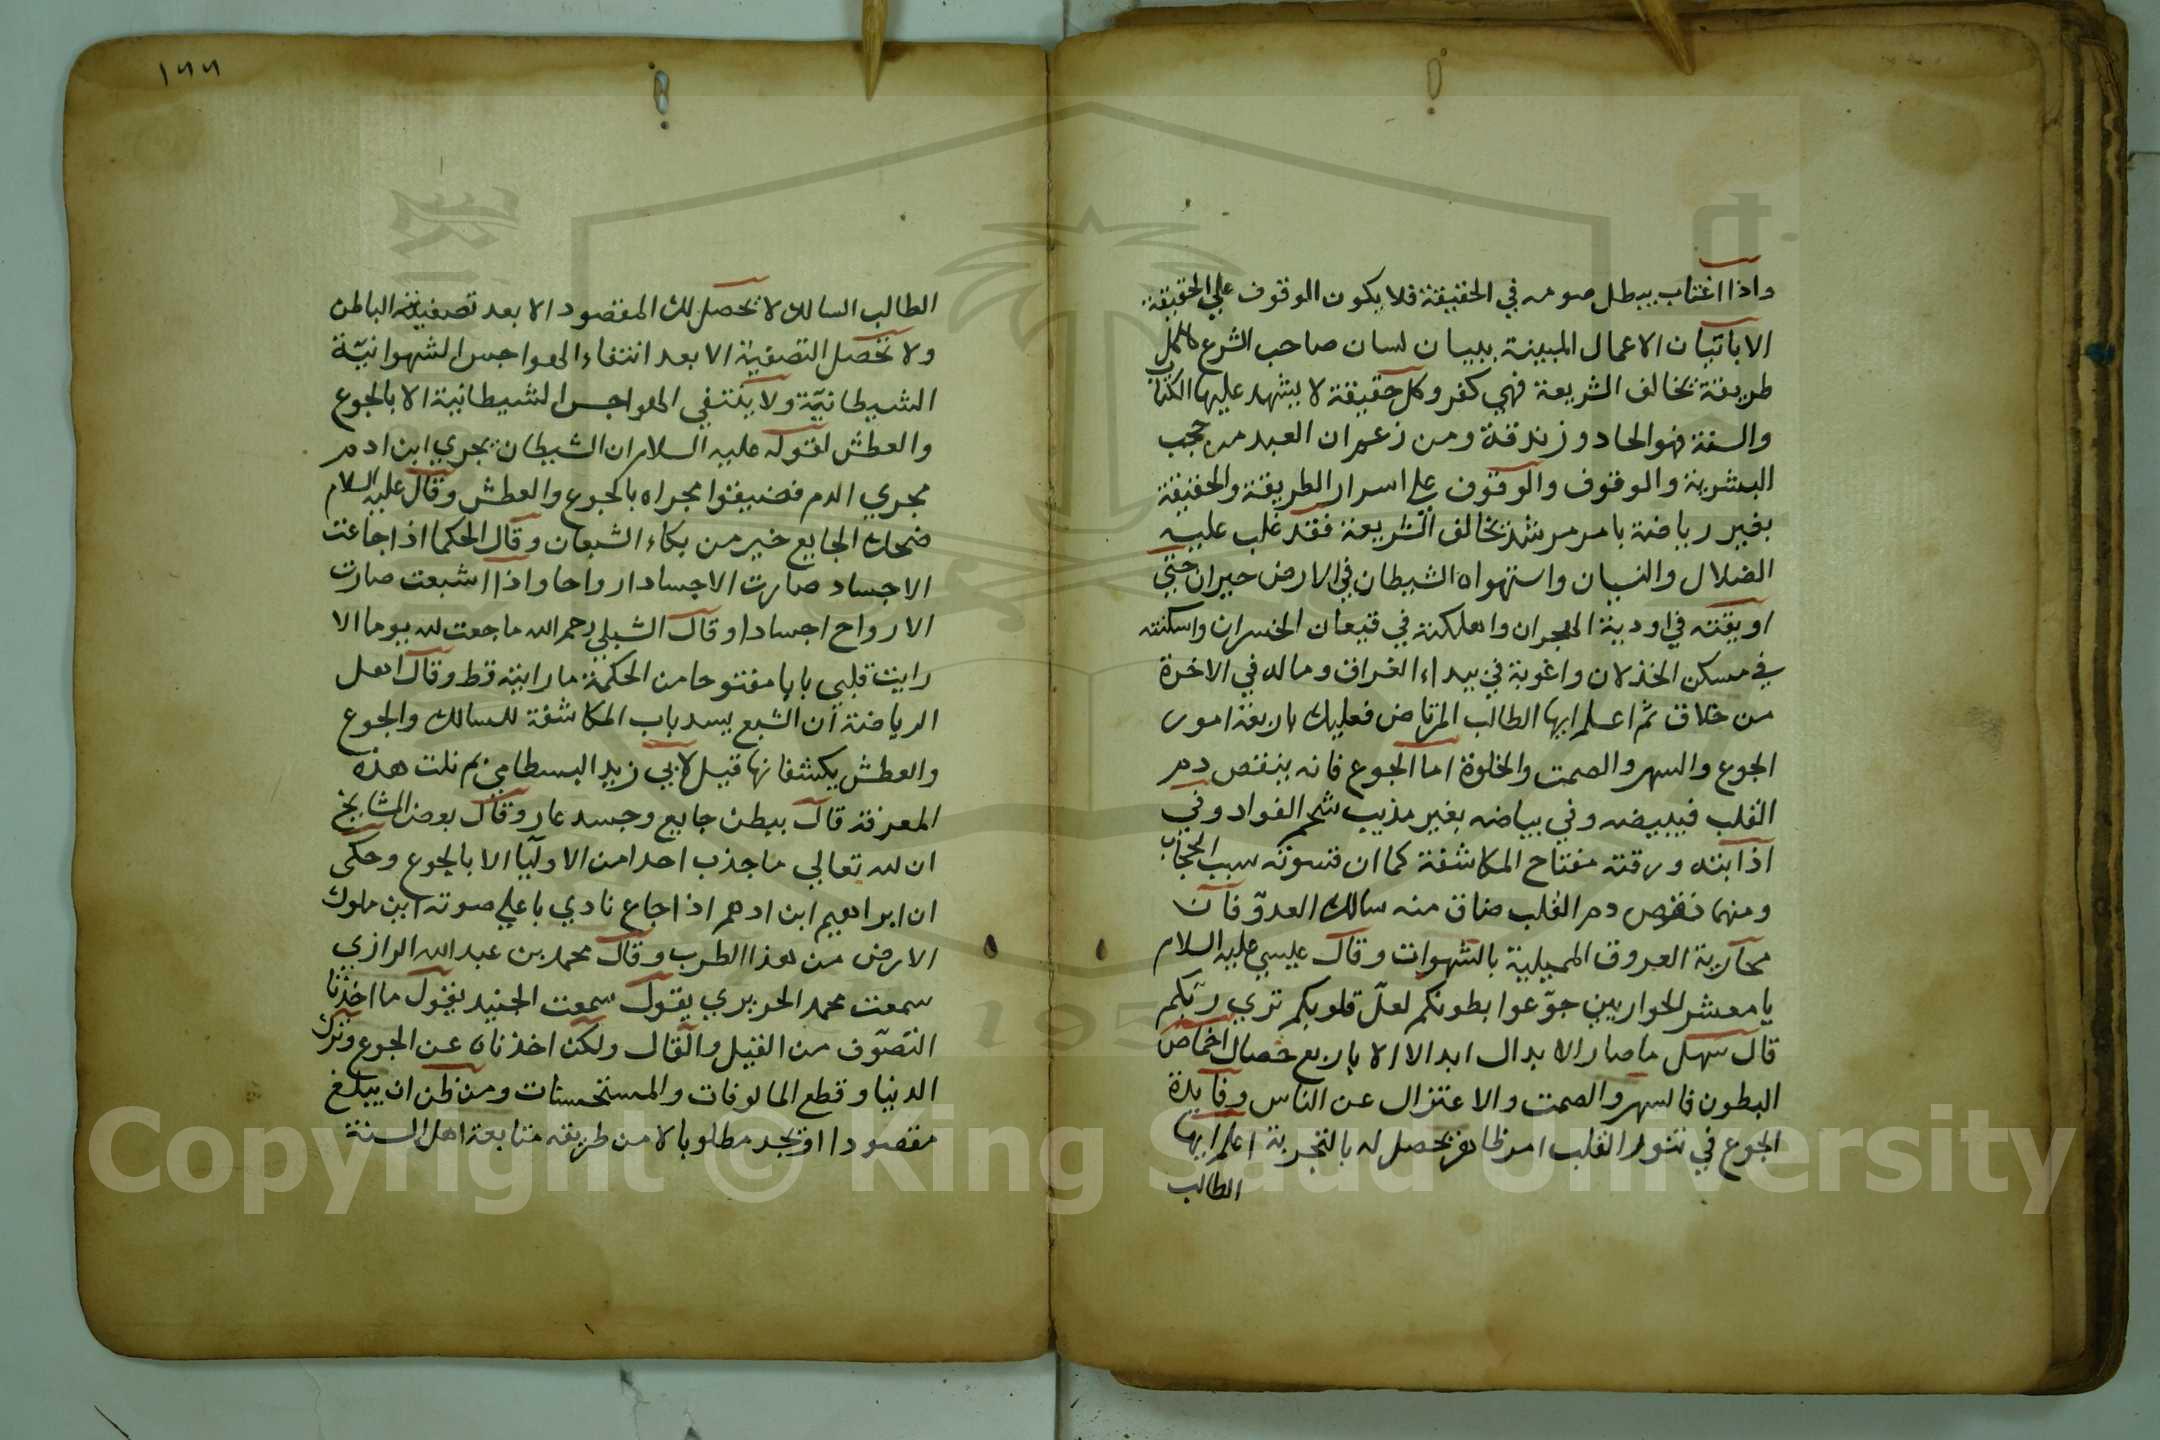 واذا اغتاب يبطل صومه في الحقيقة فلا يكون الوقوف علي الحقيقة
الا باتيان الاعمال المبينة ببيان لسان صاحب الشرع فكل
طريقة تخالف الشريعة فهي كفر وكل حقيقة لا يشهد عليها الكتاب
والسنة فهو الحاد وزندقة ومن زعم ان العبد من حجب
البشرية والوقوف والوقوف علي اسرار الطريقة والحقيقة
بغير رياضة بامر مرشد تخالف الشريعة فقد غلب عليه
الضلال والنسيان واستهواه الشيطان في الارض حيران حتي
اوبقته في اودية الهجران واهلكته في قيعان الخسران واسكنته
في مسكن الخذلان واغوية في بيداء الفراق وماله في الاخرة
من خلاق ثم اعلم ايها الطالب المرتاض فعليك باربعة امور
الجوع والسهر والصمت والخلوة اما الجوع فانه ينقص دم
القلب فيبيضه وفي بياضه بغير مذيب شحم الفواد وفي
اذابته ورقته مفتاح المكاشفة كما ان قسوته سبب الحجاب
ومنها نقص دم القلب ضاق منه سالك العدو فان
محاربة العروق الممیلية بالشهوات وقال عليسي عليه السلام
يا معشر الحواريين جوّعوا بطونكم لعل قلوبكم تري ربكم
قال سهل ما صار الابدال ابدالا الا باربع خصال اخماص
البطون فالسهر والصمت والاعتزال عن الناس وفايدة
الجوع في تنوير القلب امر ظاهر يحصل له بالتجربة اعلم ايها
الطالب
١٦٦
الطالب السالك لا تحصل لك المقصود الا بعد تصفية الباطن
ولا تحصل التصفية الا بعد انتفاء الهواجس الشهوانيّة
الشيطانيّة ولا يكتفي الهواجس الشيطانية الا بالجوع
والعطش لقوله عليه السلام ان الشيطان يجري ابن ادم
مجري الدم فضيقوا مجراه بالجوع والعطش وقال عليه السلام
ضحك الجايع خير من بكاء الشبعان وقال الحكما اذا جاعت
الاجساد صارت الاجساد ارواحا واذا اشبعت صارت
الارواح اجسادا وقال الشبلي رحمه الله ما جعت لله يوما الا
رايت قلبي بابا مفتوحا من الحكمة ما رايته قط وقال اهل
الرياضة ان الشبع يسد باب المكاشفة للسالك والجوع
والعطش يكشفانها قيل لابي زيد البسطامي بم نلت هذه
المعرفة قال ببطن جايع وجسد عار وقال بعض المشايخ
ان لله تعالي ما جذب احدا من الاوليا الا بالجوع وحكي
ان ابراهيم ابن ادهم اذا جاع نادي باعلي صوته اين ملوك
الارض من هذا الطرب وقال محمد بن عبد الله الرازي
سمعت محمد الحريري يقول سمعت الجنيد يقول ما اخذنا
التصوّف من القيل والقال ولكن اخذناه عن الجوع وترك
الدنيا وقطع المالوفات والمستحسنات ومن ظن ان يبلغ
مقصودا او يجد مطلوبا لا من طريقه متابعة اهل السنة
Copyright © King Saud University
195